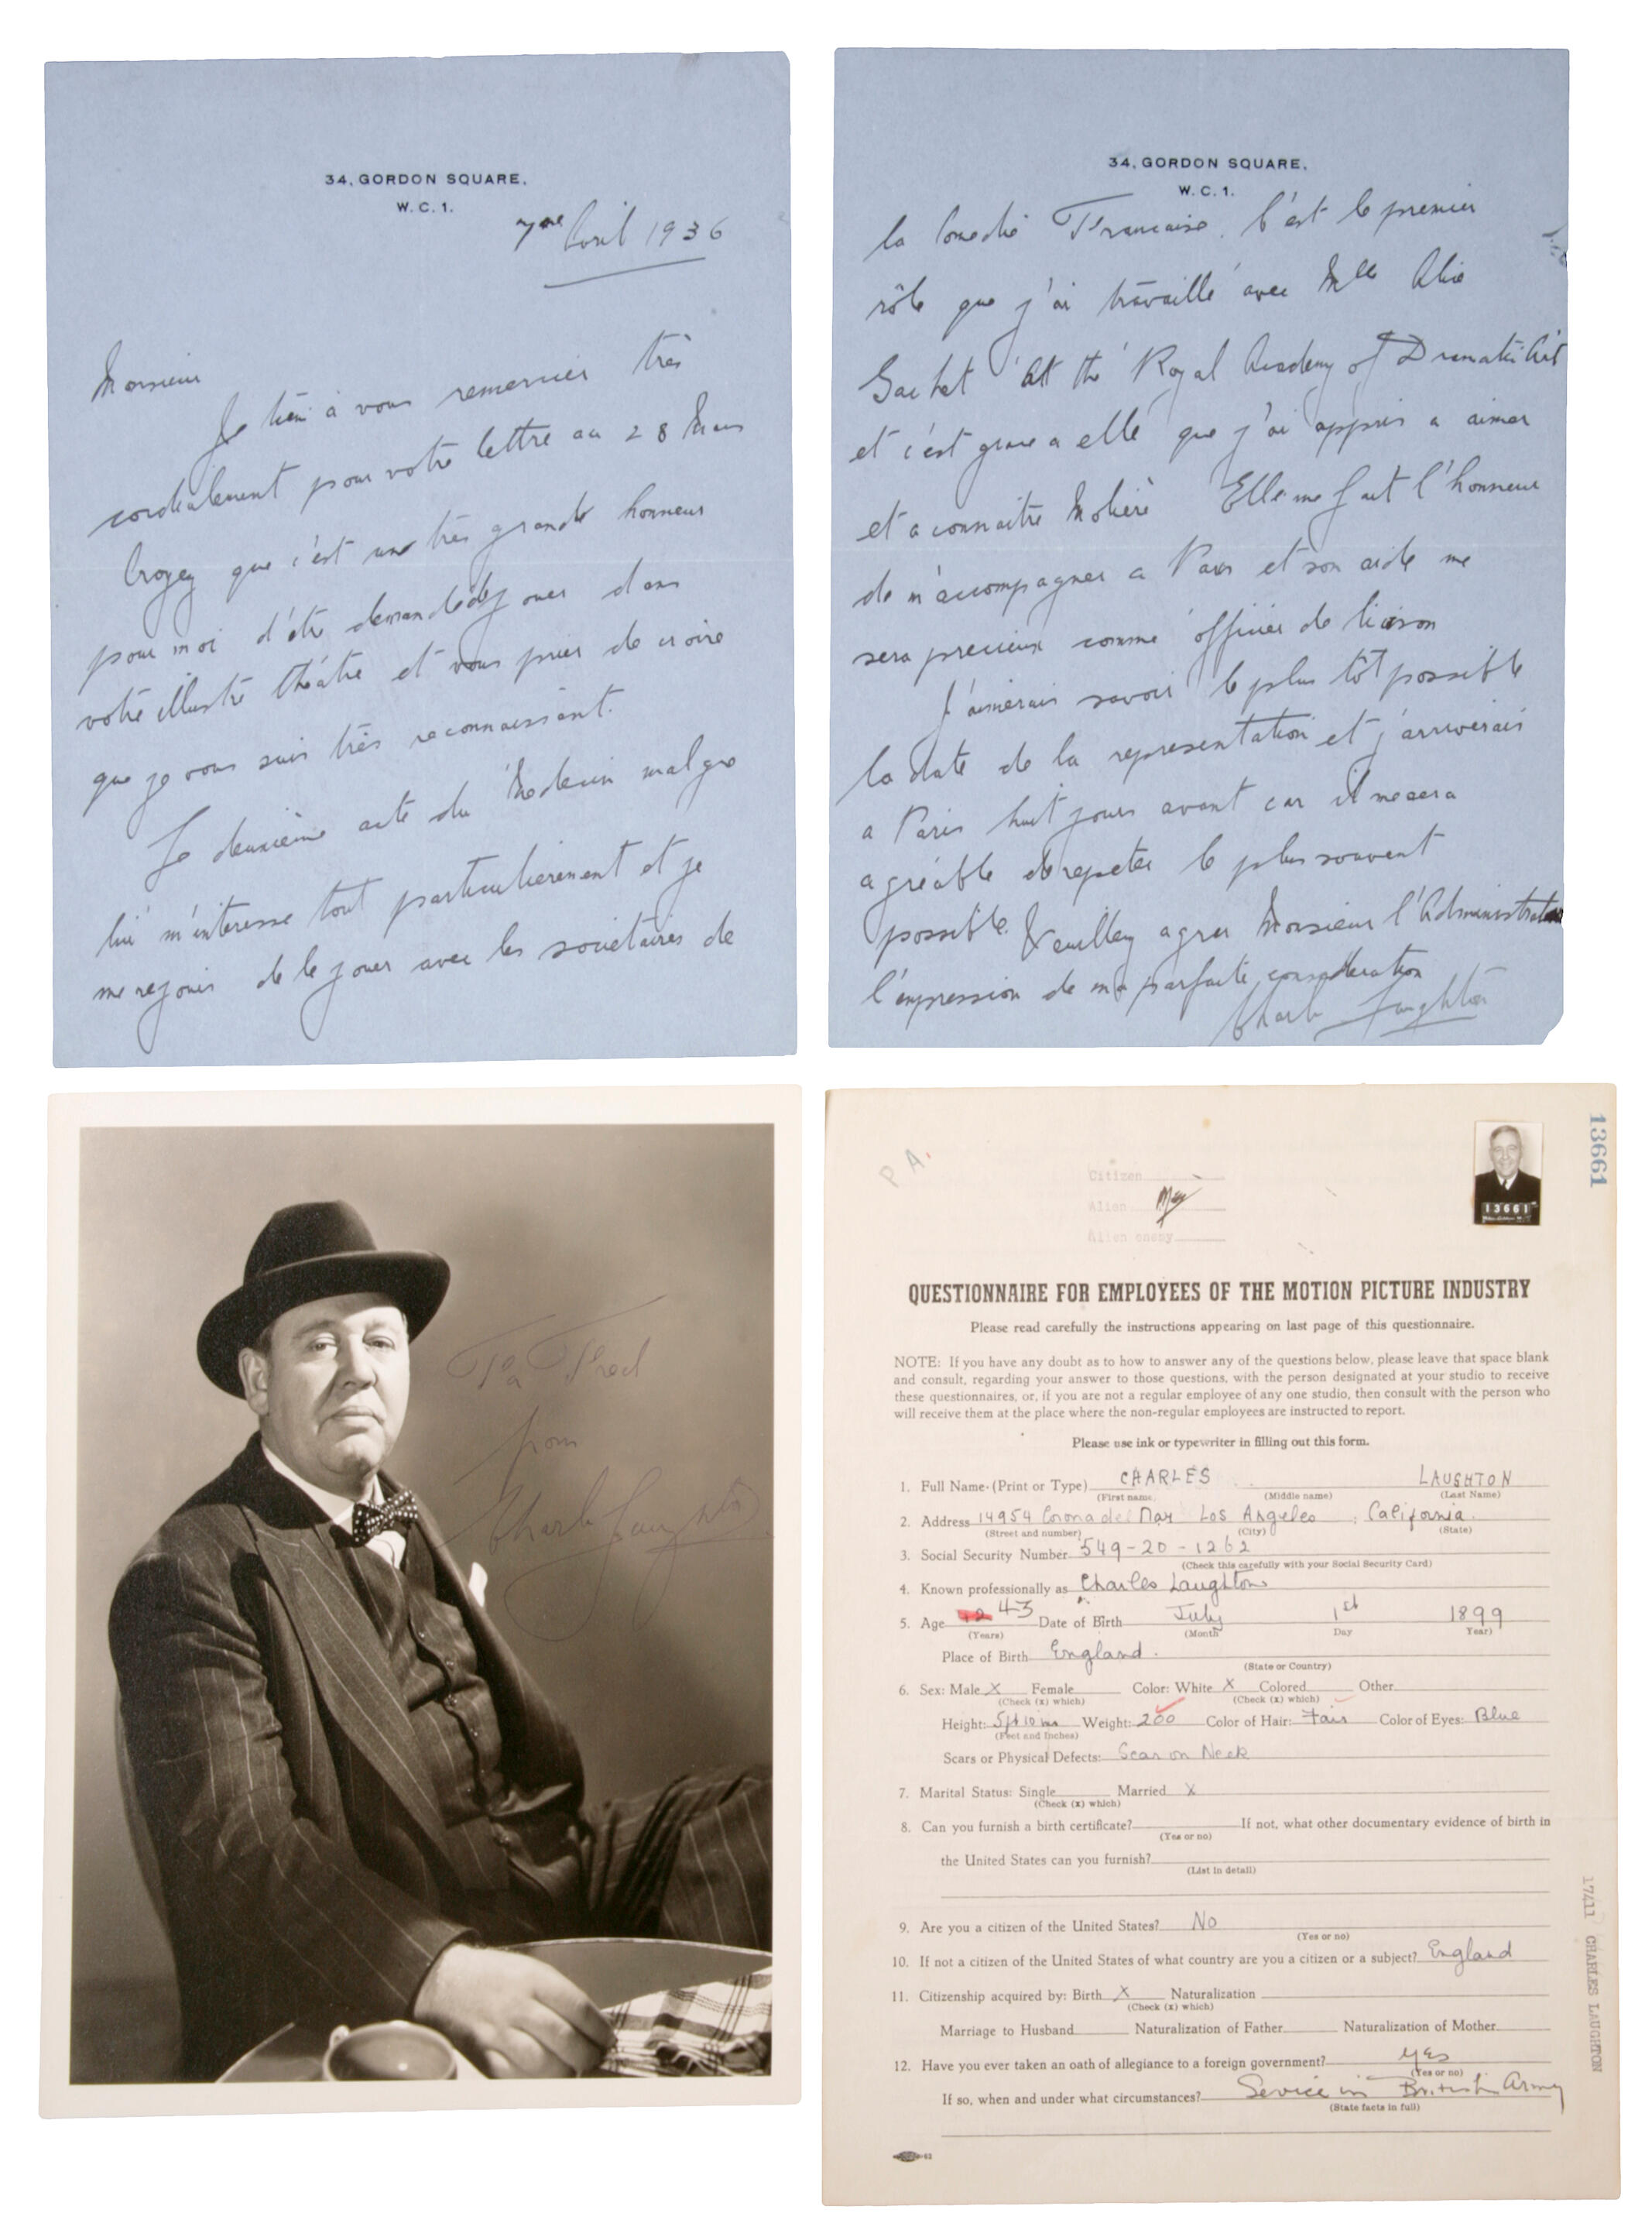 34, GORDON SQUARE,
W.C.1.
7me Avril 1936
Monsieur
Je tien à vous remercier très
cordialement pour votre lettre au 28 Mars
Croyez que c'est une très grande honneur
pour moi d'être demandé de jouer dans
votre illustre théâtre et vous prier de croire
que je vous suis très reconnaissant.
Le deuxième acte du Medecin malgre
lui m'interesse tout particulierement et je
me rejouis de le jouer avec les societaires de
34, GORDON SQUARE,
W.C.1.
la Comedie Francaise. C'est le premier
rôle que j'ai travaillé avec Mlle Alice
Gachet at the Royal Academy of Dramatic Art
et c'est grace a elle que j'ai appris a aimer
et a connaitre Moliere Elle me fait l'honneur
de m'accompagner a Paris et son aide me
sera precieux comme officier de liaison
J'aimerais savoir le plus tôt possible
la date de la representation et j'arriverais
a Paris huit jours avant car il me sera
agréable de repeter le plus souvent
possible. Veuillez agreer Monsieur l'Administrateur
l'expression de ma parfaite consideration
Charles Laughton
To Fred
from
Charles Laughton
P A.
Citizen
Alien
Alien enemy
13661
13661
QUESTIONNAIRE FOR EMPLOYEES OF THE MOTION PICTURE INDUSTRY
Please read carefully the instructions appearing on last page of this questionnaire.
NOTE: If you have any doubt as to how to answer any of the questions below, please leave that space blank
and consult, regarding your answer to those questions, with the person designated at your studio to receive
these questionnaires, or, if you are not a regular employee of any one studio, then consult with the person who
will receive them at the place where the non-regular employees are instructed to report.
Please use ink or typewriter in filling out this form.
1. Full Name (Print or Type) CHARLES LAUGHTON
(First name) (Middle name) (Last Name)
2. Address 14954 Corona del Mar Los Angeles California
(Street and number) (City) (State)
3. Social Security Number 549-20-1262
(Check this carefully with your Social Security Card)
4. Known professionally as Charles Laughton
5. Age 42 43 Date of Birth July 1st 1899
(Years) (Month) Day Year)
Place of Birth England.
(State or Country)
6. Sex: Male X Female Color: White X Colored Other
(Check (x) which) (Check (x) which)
Height: 5ft 10 ins Weight: 200 Color of Hair: Fair Color of Eyes: Blue
(Feet and Inches)
Scars or Physical Defects: Scar on Neck
7. Marital Status: Single Married X
(Check (x) which)
8. Can you furnish a birth certificate? If not, what other documentary evidence of birth in
(Yes or no)
the United States can you furnish?
(List in detail)
9. Are you a citizen of the United States? No
(Yes or no)
10. If not a citizen of the United States of what country are you a citizen or a subject? England
11. Citizenship acquired by: Birth X Naturalization
(Check (x) which)
Marriage to Husband Naturalization of Father Naturalization of Mother
12. Have you ever taken an oath of allegiance to a foreign government? yes
(Yes or no)
If so, when and under what circumstances? Sevice in British Army
(State facts in full)
17411 CHARLES LAUGHTON